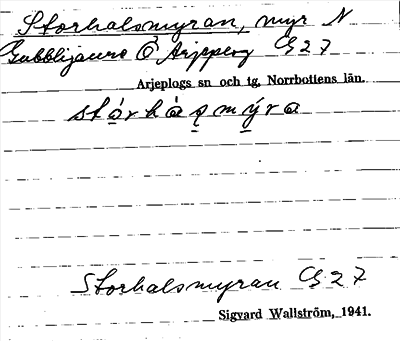 Storhalsmyran, myr N
Gubblijaure Ö Arjeplog G 27
Arjeplogs sn och tg, Norrbottens län.
stórhàsmýra
Storhalsmyran G 27
Sigvard Wallström, 1941.